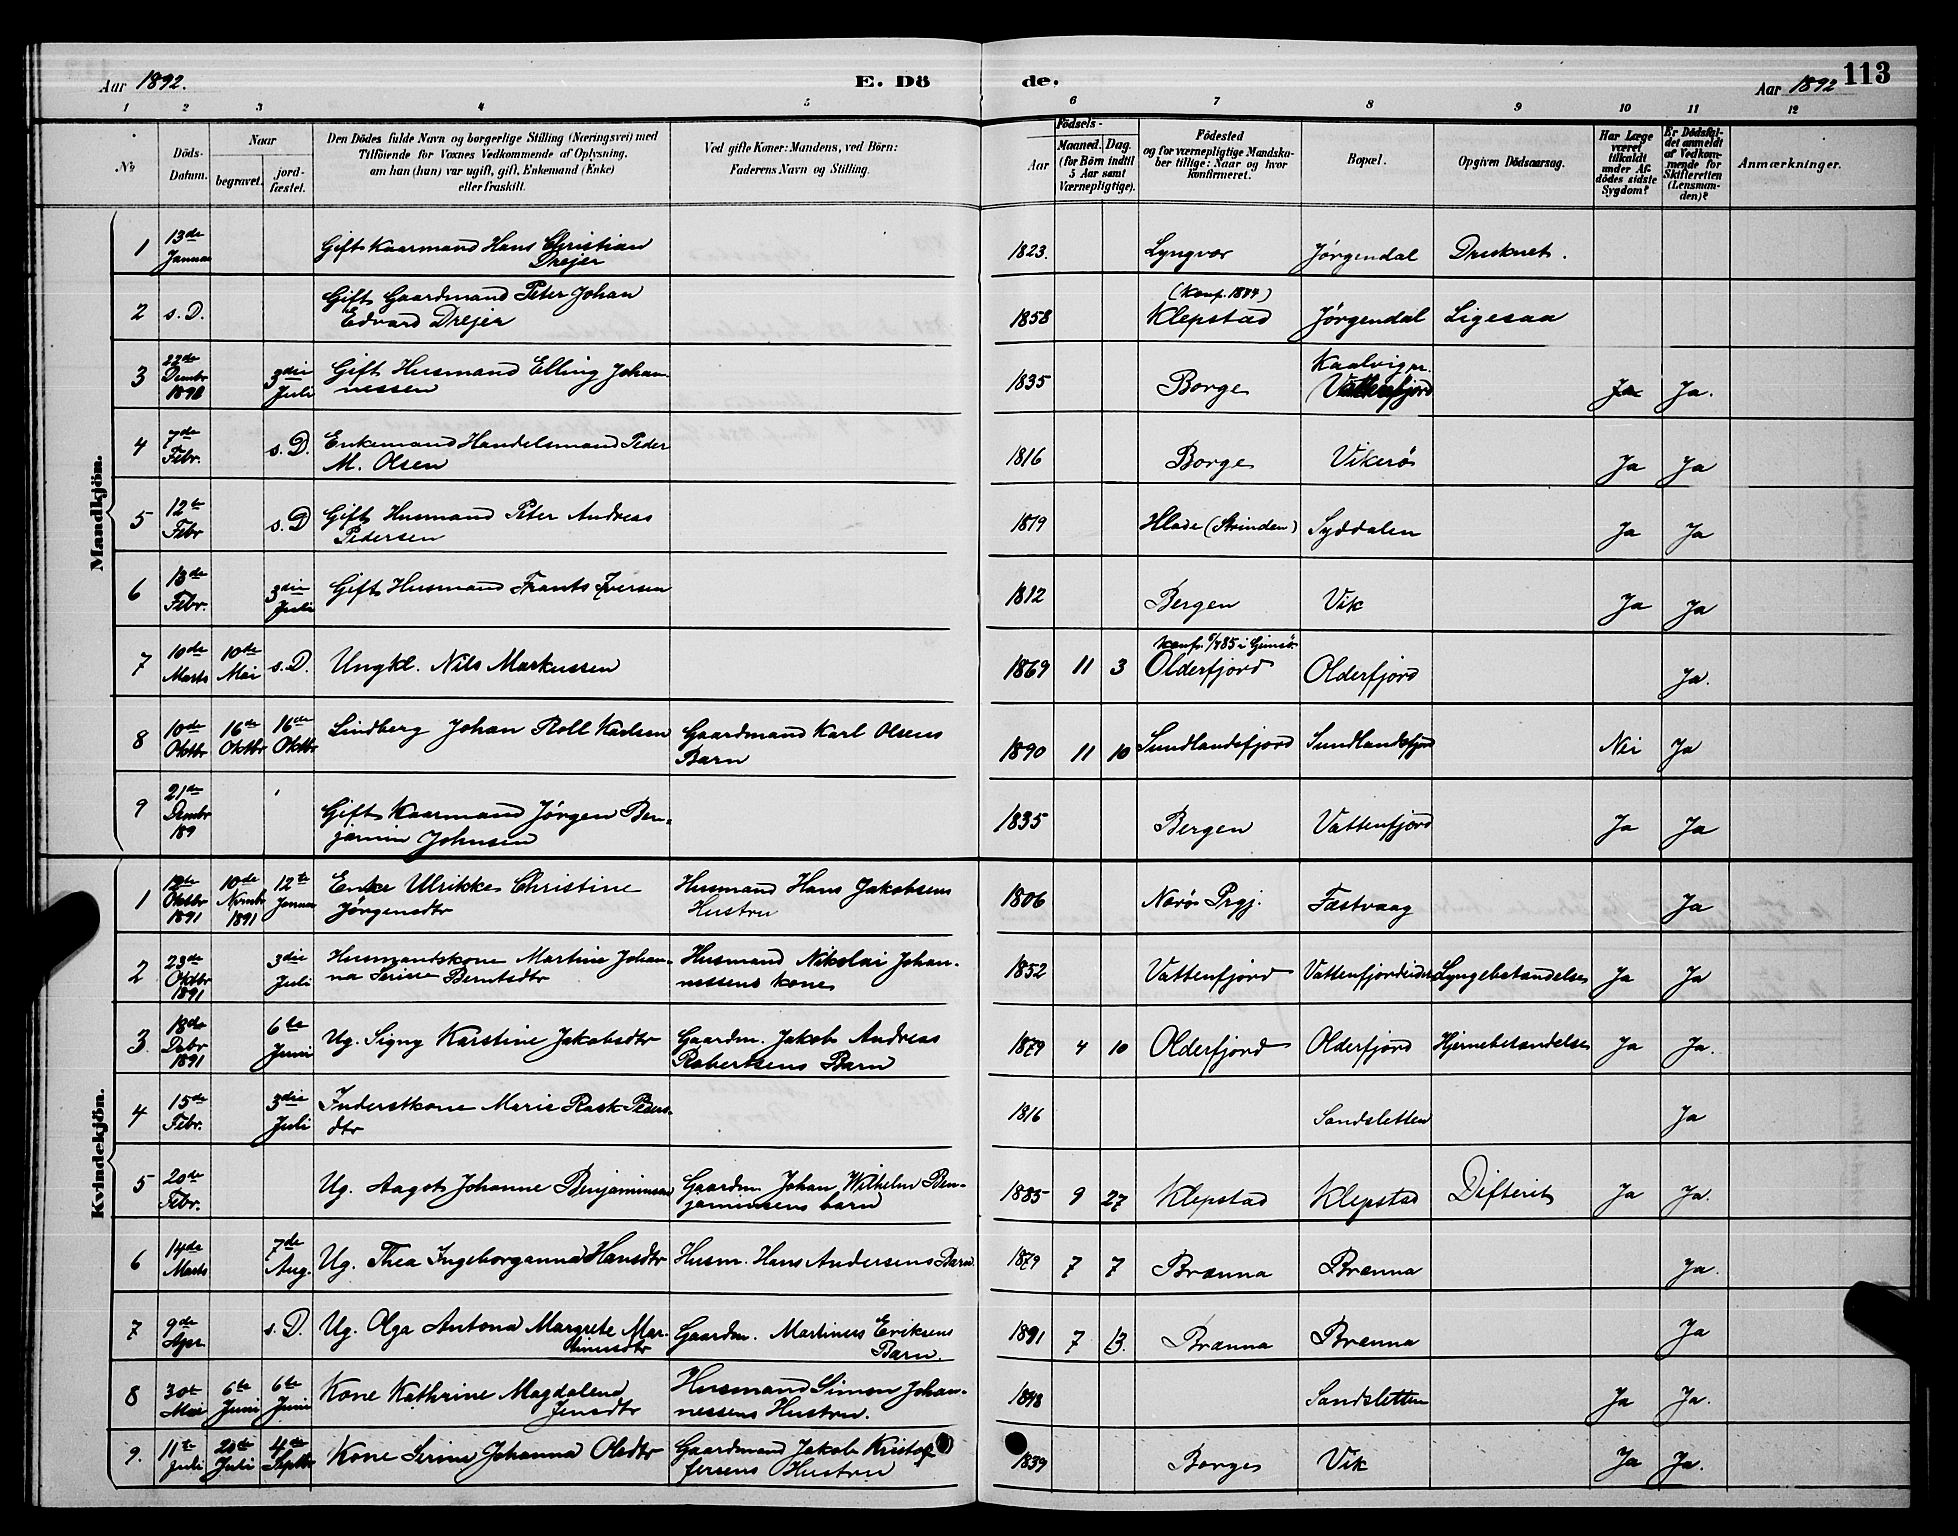 Aar 1892.
E. Dö
de.
Aar 1892
113
1 2 3 4 5 6 7 8 9 10 11 12
No
Döds-
Datum.
Naar
begravet.
jord-
fæstet.
Den Dödes fulde Navn og borgerlige Stilling (Næringsvei) med
Tilföiende for Voxnes Vedkommende af Oplysning,
om han (hun) var ugift, gift, Enkemand (Enke)
eller fraskilt.
Ved gifte Koner: Mandens, ved Börn:
Faderens Navn og Stilling.
Födsels-
Aar
Maaned.
Dag.
(for Börn indtil
5 Aar samt
Værnepligtige).
Födested
og for værnepligtige Mandska-
ber tillige: Naar og hvor
konfirmeret.
Bopæl.
Opgiven Dödsaarsag.
Har Læge
været
tilkaldt
under Af-
dödes sidste
Sygdom?
Er Dödsfal-
det anmeldt
af Vedkom-
mende for
Skifteretten
(Lensman-
den)?
Anmærkninger.
Mandkjön.
1 13de Januar Gift Kaarmand Hans Christian
Drejer 1823. Lyngvær Jørgendal Druknet.
2 s. D. Gift Gaardmand Peter Johan
Edvard Drejer 1858 (Konf. 1874)
Klepstad Jørgendal Ligesaa
3 22de Dembr 3die Juli Gift Husmand Elling Johan-
nessen 1835 Borge Kaalvig pr.
Vattenfjord Ja Ja.
4 7de Febr. s. D. Enkemand Handelsmand Peder
M. Olsen 1816 Borge Vikerø Ja Ja
5 12te Febr s. D Gift Husmand Peter Andreas
Pedersen 1819 Hlade (Strinden) Syddalen Ja Ja
6 13de Febr. 3die Juli Gift Husmand Frants Iversen 1812 Bergen Vik Ja Ja
7 10de Marts 10de Mai s. D. Ungkl. Nils Markussen 1869 11 3 Konf. 85 i Gimsø
Olderfjord Olderfjord Ja.
8 10de Oktbr 16de Oktbr 16de Oktbr Lindberg Johan Roll Karlsen Gaardmand Karl Olsens
Barn 1890 11 10 Sundlandsfjord Sundlandsfjord Nei Ja
9 21de Dembr 189 Gift Kaarmand Jørgen Ben-
jamin Johnsen 1835 Bergen Vattenfjord Ja Ja
Kvindekjön.
1 12te Oktbr 1891 10de Nvmbr 1891 12te Januar Enke Ulrikke Christine
Jørgensdtr Husmand Hans Jakobsens
Hustru 1806 Nærø Prgj. Fæstvaag Ja
2 23de Oktbr 1891 3die Juli Husmandskone Martine Johan-
na Serine Berntsdtr Husmand Nikolai Johan-
nessens Kone 1852 Vattenfjord Vattenfjordeidet Lyngebetændelse Ja Ja
3. 18de Debr 1891 6te Juni Ug. Signy Karstine Jakobsdtr Gaardm. Jakob Andreas
Robertsens Barn 1879 4 10 Olderfjord Olderfjord Hjernebetændelse Ja Ja.
4 15de Febr. 3die Juli Inderstkone Marie Rask Peders-
dtr 1816 Sandsletten Ja
5 20de Febr. Ug. Aagot Johanne Benjaminsen Gaardm. Johan Wilhelm Ben-
jaminsens barn 1885 9 27 Klepstad Klepstad Difterit Ja Ja.
6 14de Marts 7de Aug. Ug. Thea Ingeborganna Hansdtr Husm. Hans Andersens Barn 1879 7 7 Brænna Brænna Ja.
7 9de Apr s. D. Ug. Olga Antona Margrete Mar-
tinusdtr Gaardm. Martinus Eriksens
Barn. 1891 7 13. Brænna Brænna Ja
8 30te Mai 6te Juni 6te Juni Kone Kathrine Magdalena
Jensdtr Husmand Simon Johan-
nessens Hustru. 1848 Sandsletten Ja Ja.
9. 11te Juli 20de Juli 4de Septbr Kone Serine Johanna Olsdtr Gaardmand Jakob Kristof
fersens Hustru 1839 Borge Vik Ja Ja.